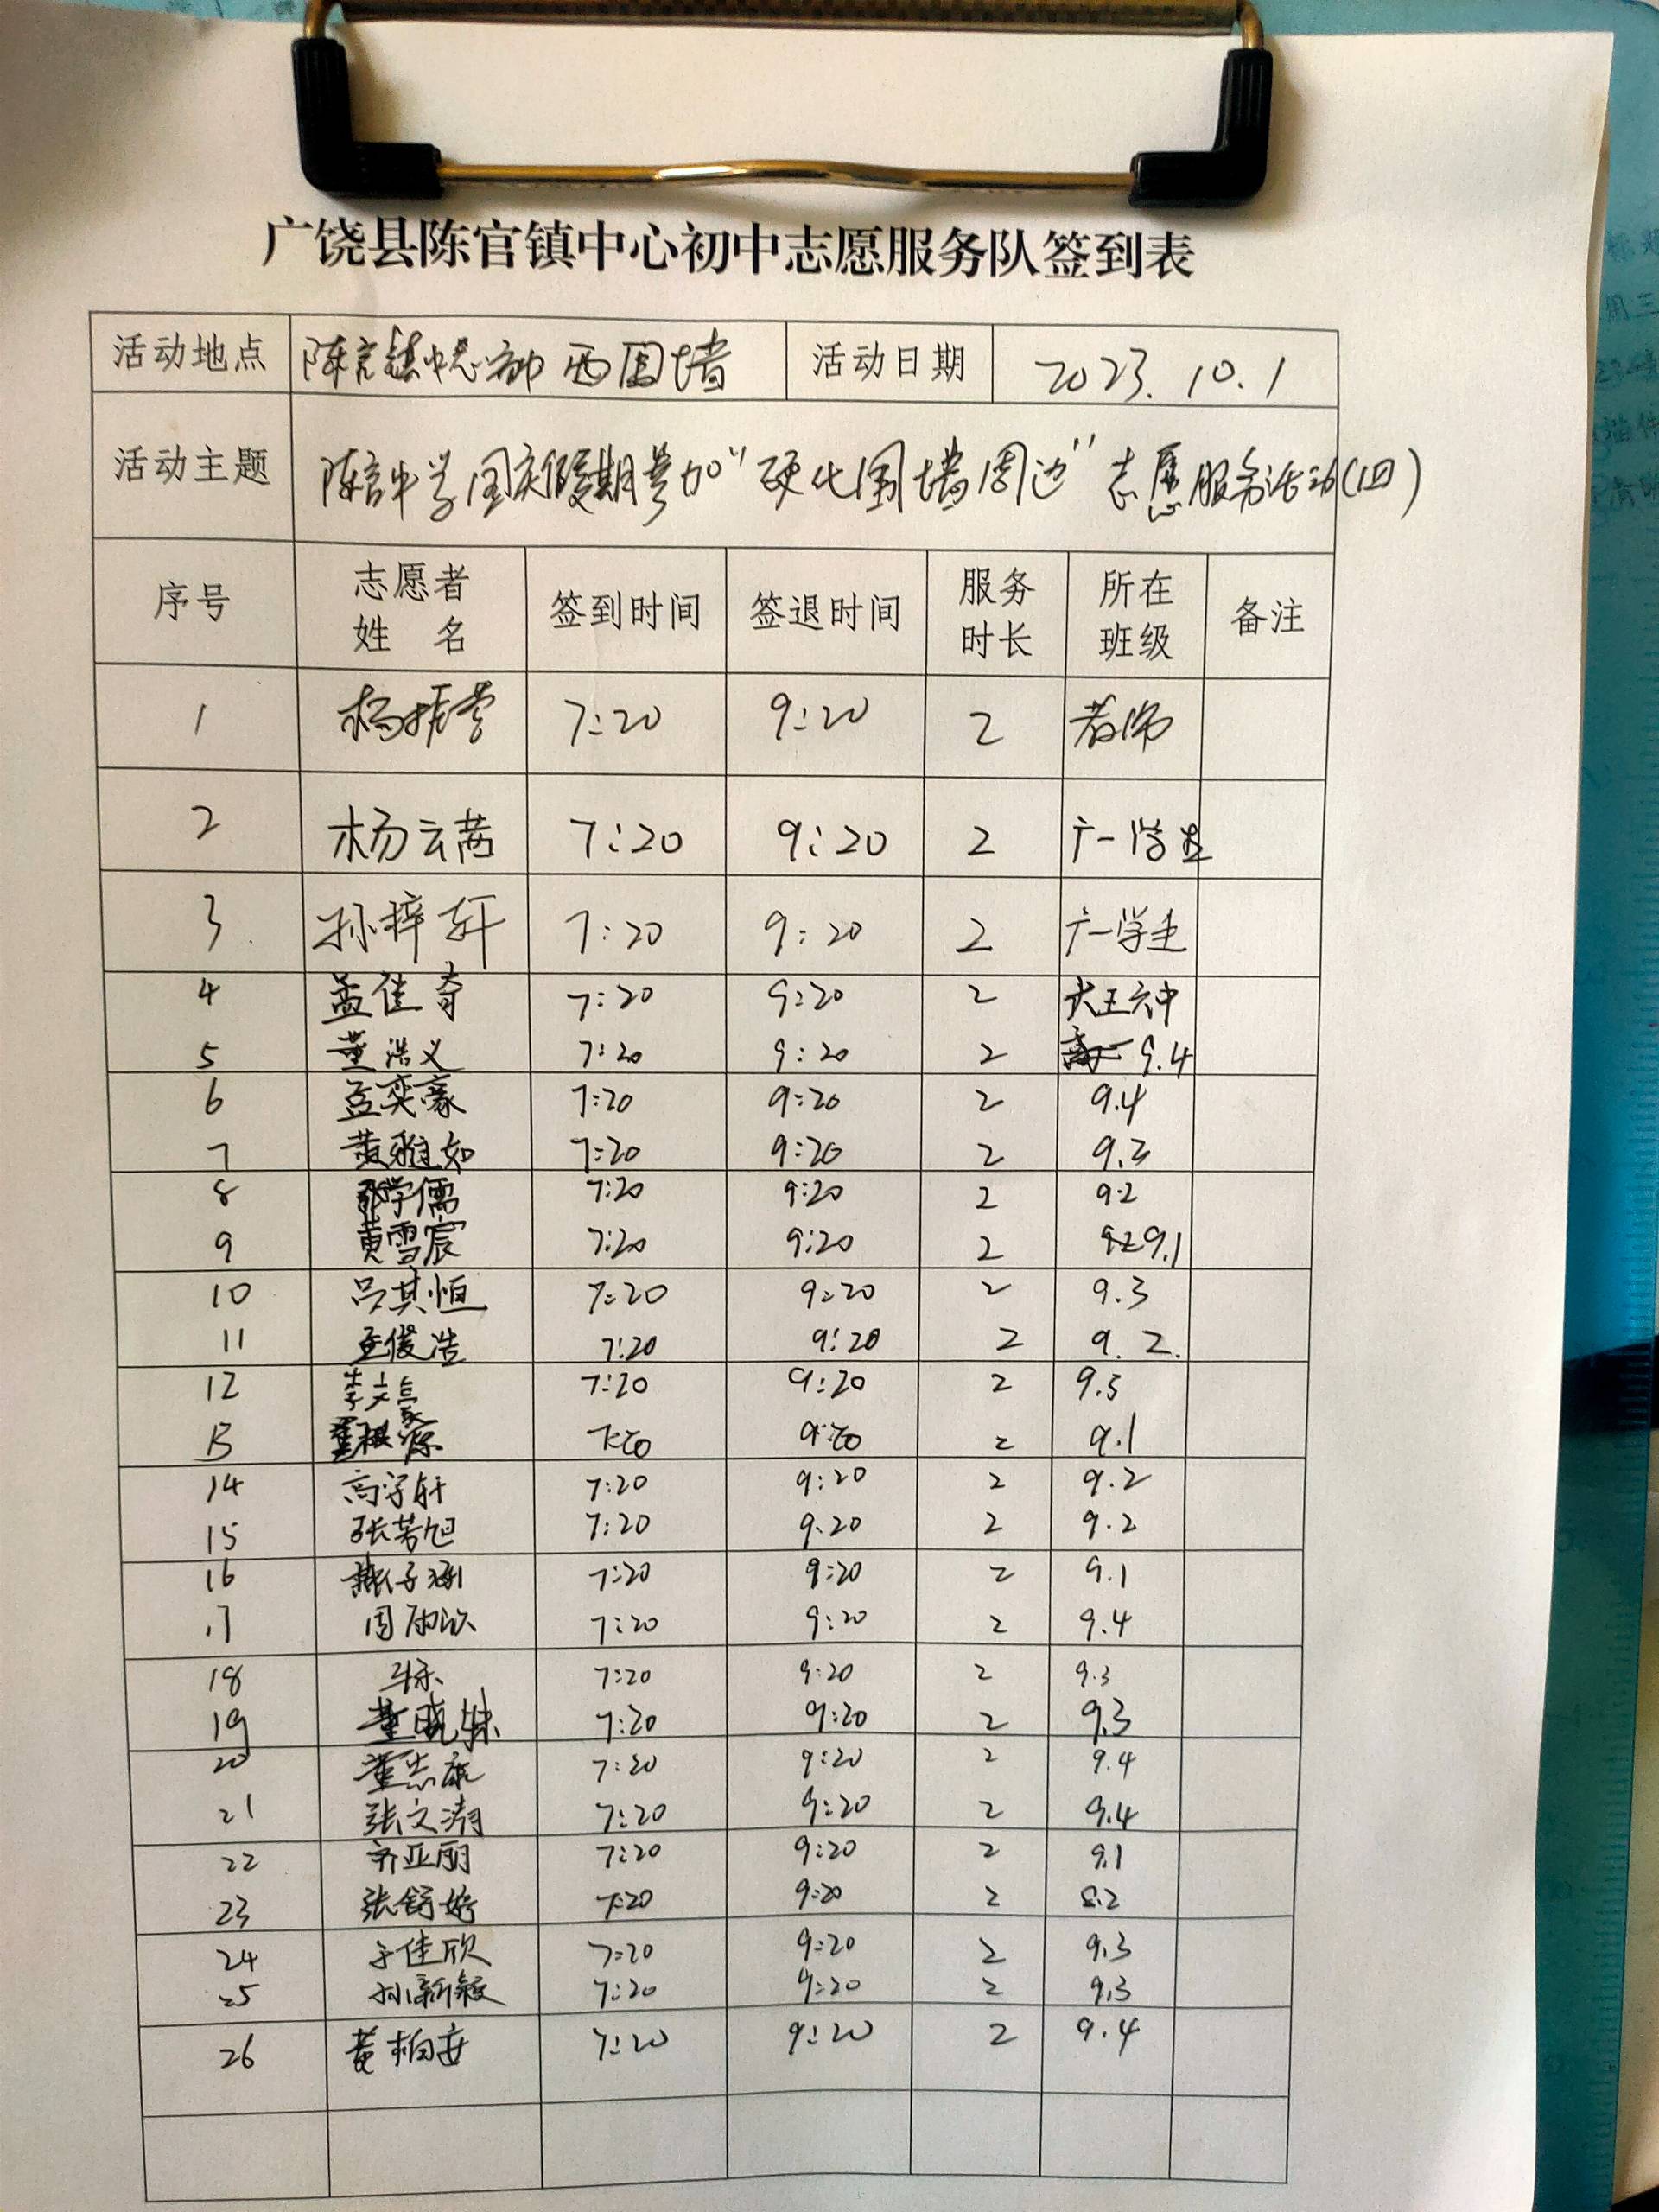 广饶县陈官镇中心初中志愿服务队签到表
活动地点 陈官镇中心 西围墙 活动日期 2023.10.1
活动主题 陈官中学国庆假期参加“硬化围墙周边”志愿服务活动(四)
序号 志愿者姓名 签到时间 签退时间 服务时长 所在班级 备注
1 杨振 7:20 9:20 2 教师
2 杨云茜 7:20 9:20 2 广一学生
3 孙梓轩 7:20 9:20 2 广一学生
4 孟佳奇 7:20 9:20 2 大王六中
5 董浩义 7:20 9:20 2 9.4
6 孟奕豪 7:20 9:20 2 9.4
7 黄雅如 7:20 9:20 2 9.3
8 学儒 7:20 9:20 2 9.2
9 黄雪宸 7:20 9:20 2 9.1
10 吕其恒 7:20 9:20 2 9.3
11 俊浩 7:20 9:20 2 9.2.
12 李文豪 7:20 9:20 2 9.3
13 7:20 9:20 2 9.1
14 高梓轩 7:20 9:20 2 9.2
15 张芳旭 7:20 9.20 2 9.2
16 子涵 7:20 9:20 2 9.1
17 周雨欣 7:20 9:20 2 9.4
18 7:20 9:20 2 9.3
19 董晓 7:20 9:20 2 9.3
20 董志 7:20 9:20 2 9.4
21 张文 7:20 9:20 2 9.4
22 齐亚丽 7:20 9:20 2 9.1
23 张舒婷 7:20 9:20 2 8.2
24 于佳欣 7:20 9:20 2 9.3
25 孙新颖 7:20 9:20 2 9.3
26 黄柏 7:20 9:20 2 9.4